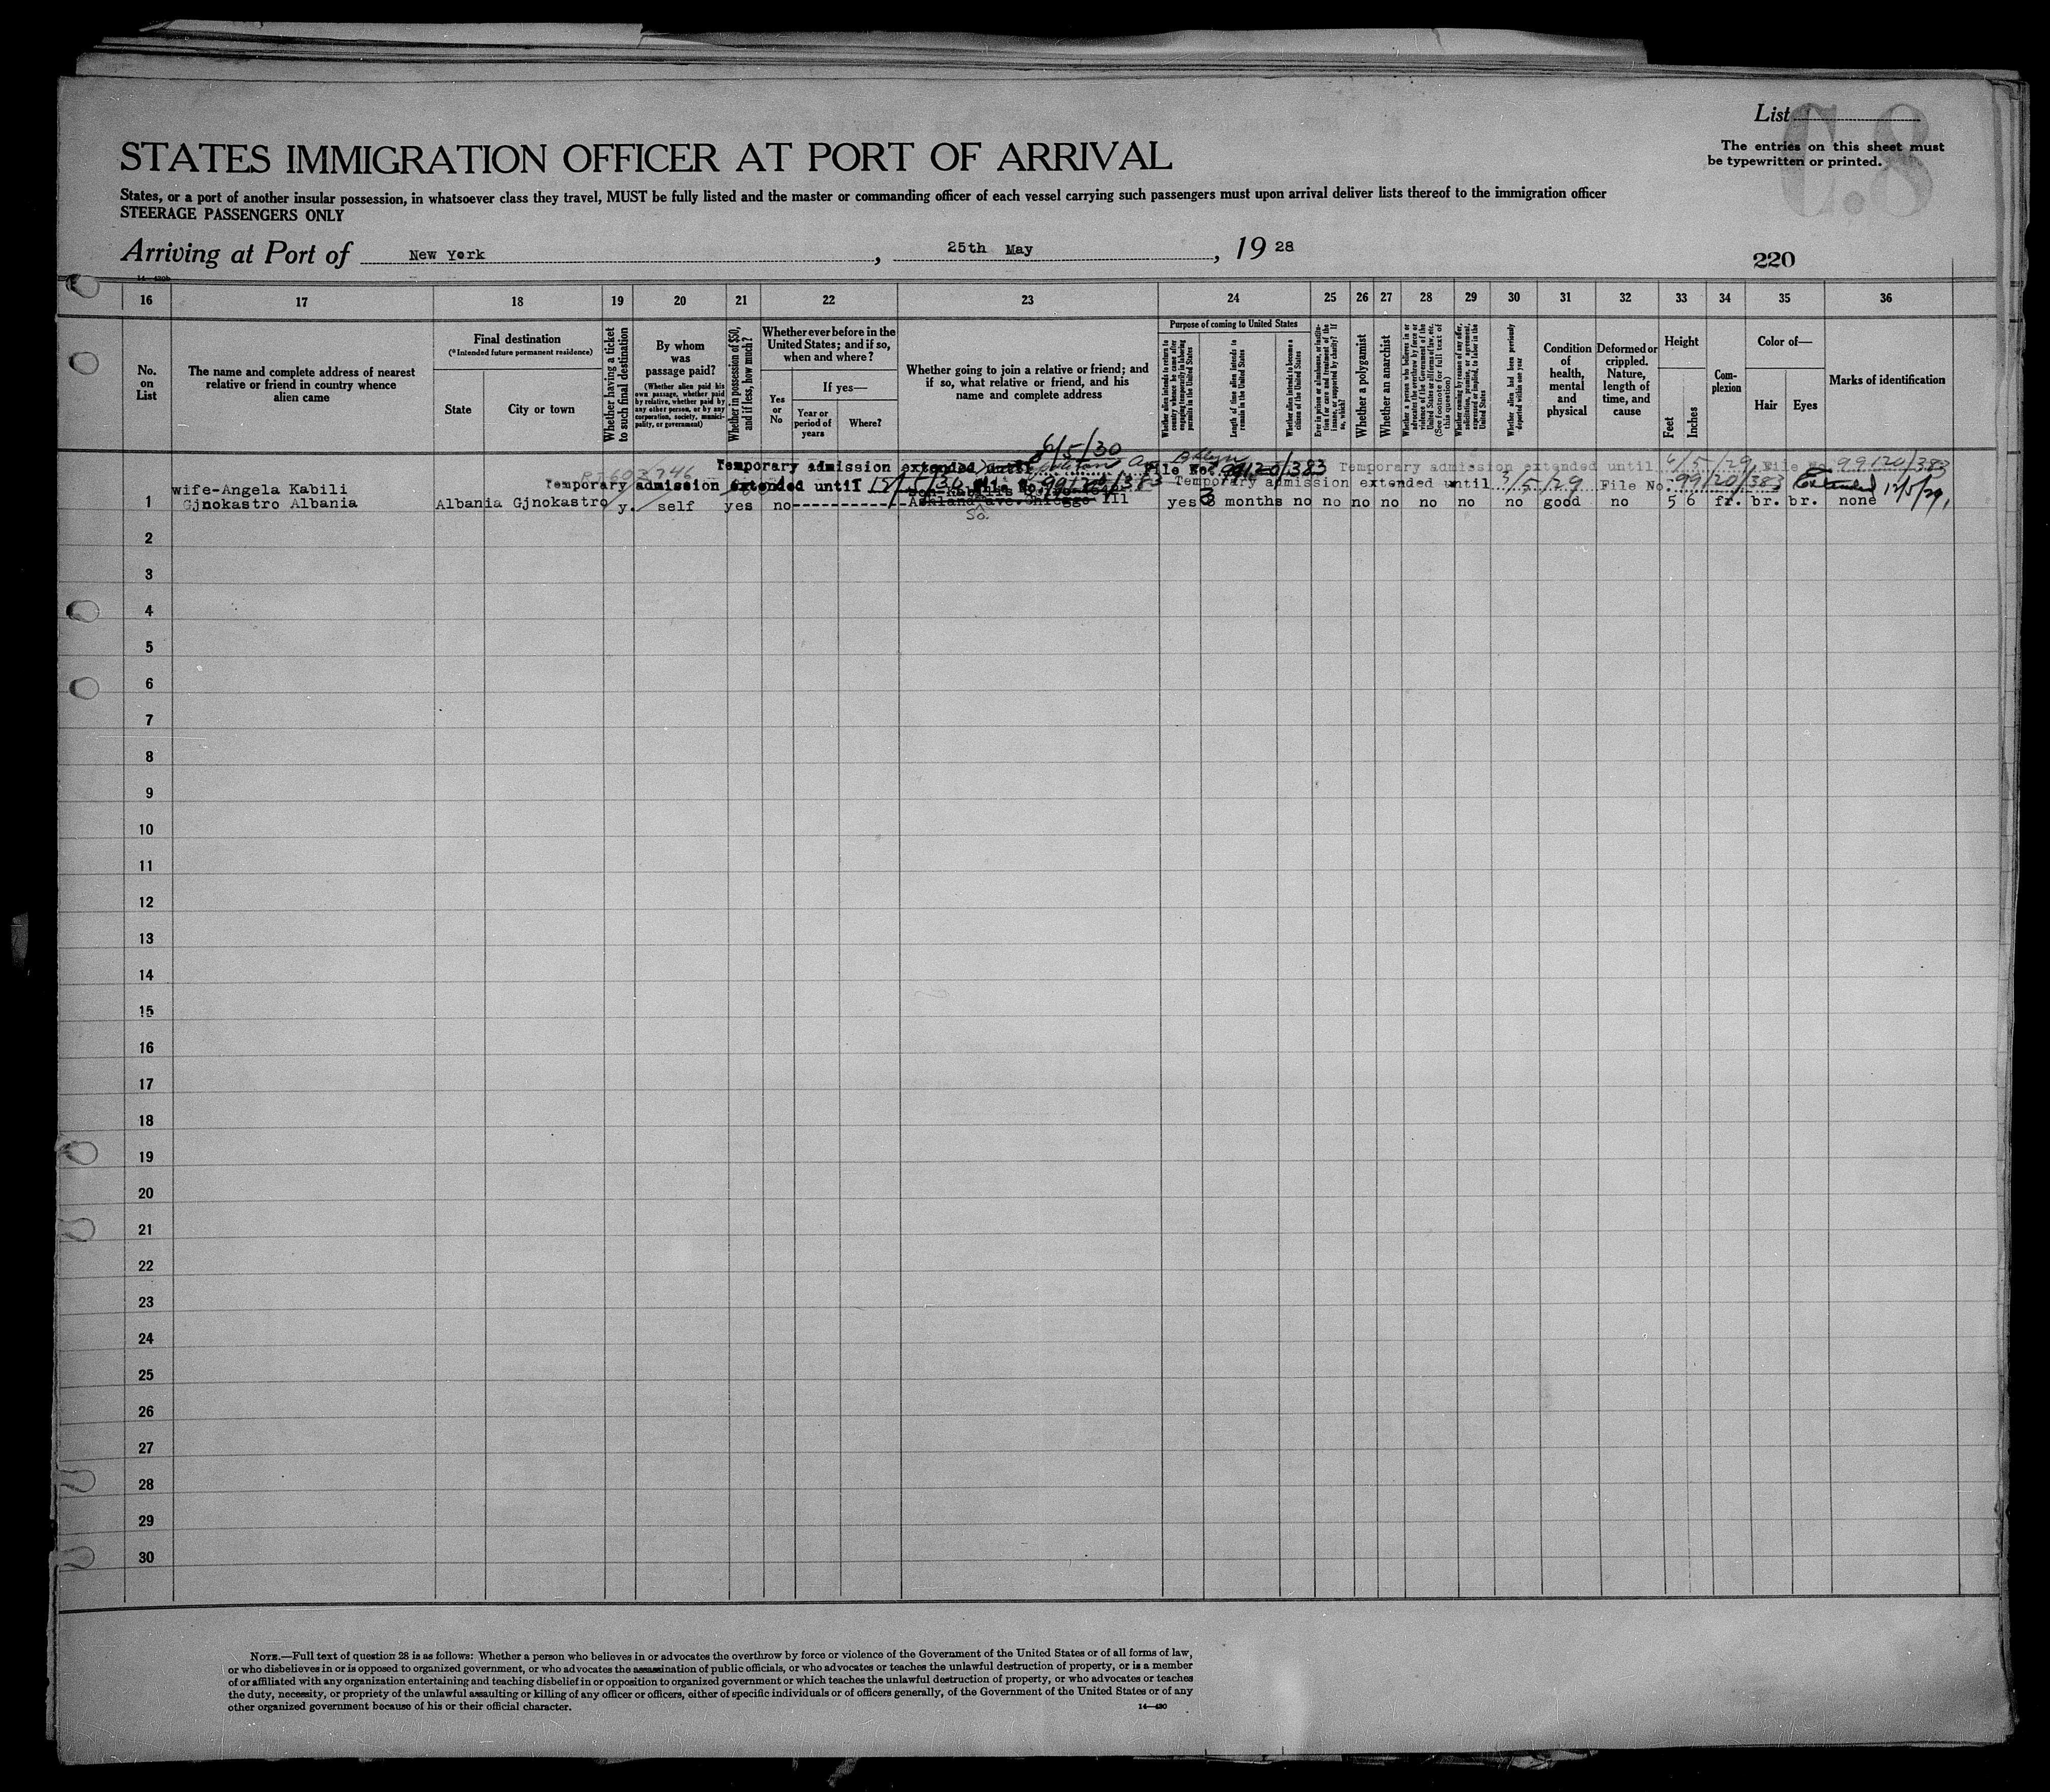 List
C.8
The entries on this sheet must
be typewritten or printed.
STATES IMMIGRATION OFFICER AT PORT OF ARRIVAL
States, or a port of another insular possession, in whatsoever class they travel, MUST be fully listed and the master or commanding officer of each vessel carrying such passengers must upon arrival deliver lists thereof to the immigration officer
STEERAGE PASSENGERS ONLY
Arriving at Port of New York, 25th May, 19 28
220
14—430b
16 17 18 19 20 21 22 23 24 25 26 27 28 29 30 31 32 33 34 35 36
No. on List
The name and complete address of nearest relative or friend in country whence alien came
Final destination
(*Intended future permanent residence)
State
City or town
Whether having a ticket to such final destination
By whom was passage paid?
(Whether alien paid his own passage, whether paid by relative, whether paid by any other person, or by any corporation, society, municipality, or government)
Whether in possession of $50, and if less, how much?
Whether ever before in the United States; and if so, when and where?
Yes or No
If yes—
Year or period of years
Where?
Whether going to join a relative or friend; and if so, what relative or friend, and his name and complete address
Purpose of coming to United States
Whether alien intends to return to country whence he came after engaging temporarily in laboring pursuits in the United States
Length of time alien intends to remain in the United States
Whether alien intends to become a citizen of the United States
Ever in prison or almshouse, or institution for care and treatment of the insane, or supported by charity? If so, which?
Whether a polygamist
Whether an anarchist
Whether a person who believes in or advocates the overthrow by force or violence of the Government of the United States or all forms of law, etc. (See footnote for full text of this question)
Whether coming by reason of any offer, solicitation, promise, or agreement, expressed or implied, to labor in the United States
Whether alien had been previously deported within one year
Condition of health, mental and physical
Deformed or crippled. Nature, length of time, and cause
Height
Feet
Inches
Complexion
Color of—
Hair
Eyes
Marks of identification
6/5/30
Temporary admission extended until File No. 99120/383 Temporary admission extended until 6/5/29 File No. 99120/383
Temporary admission extended until 12/5/30 File No. 99120/383 Temporary admission extended until 3/5/29 File No. 99120/383 Extended 12/5/29
wife-Angela Kabili
1 Gjnokastro Albania Albania Gjnokastro y. self yes no Ashland ave. Chicago Ill yes 3 months no no no no no no no good no 5 6 fr. br. br. none
So.
2
3
4
5
6
7
8
9
10
11
12
13
14
15
16
17
18
19
20
21
22
23
24
25
26
27
28
29
30
NOTE.—Full text of question 28 is as follows: Whether a person who believes in or advocates the overthrow by force or violence of the Government of the United States or of all forms of law,
or who disbelieves in or is opposed to organized government, or who advocates the assassination of public officials, or who advocates or teaches the unlawful destruction of property, or is a member
of or affiliated with any organization entertaining and teaching disbelief in or opposition to organized government or which teaches the unlawful destruction of property, or who advocates or teaches
the duty, necessity, or propriety of the unlawful assaulting or killing of any officer or officers, either of specific individuals or of officers generally, of the Government of the United States or of any
other organized government because of his or their official character.
14—430